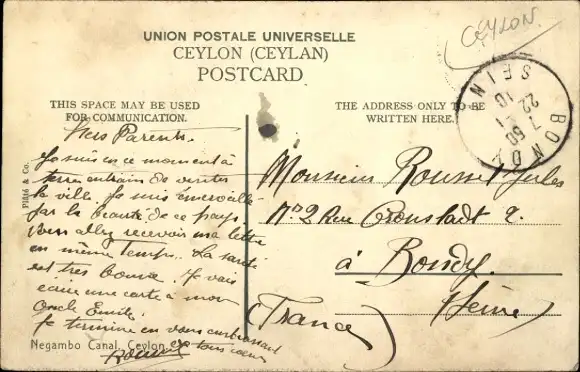 CEYLON.
UNION POSTALE UNIVERSELLE
CEYLON (CEYLAN)
POSTCARD
THIS SPACE MAY BE USED
FOR COMMUNICATION.
THE ADDRESS ONLY TO BE
WRITTEN HERE.
BONDY
SEINE
7 50
22
10
Plâté & Co.
Chers Parents.
Je suis en ce moment à
terre en train de visiter
la ville. Je suis émerveillé
par la beauté de ce pays.
Vous allez recevoir ma lettre
en même temps. La santé
est très bonne. Je vais
écrire une carte à mon
Oncle Emile.
Je termine en vous embrassant
de tout coeur
Monsieur Rousset Jules
N° 2 Rue Cronstadt 2.
à Bondy.
(Seine)
(France)
Negambo Canal, Ceylon